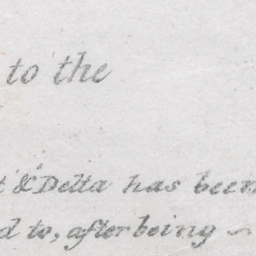 to the
t & Delta has been
d to, after being ~